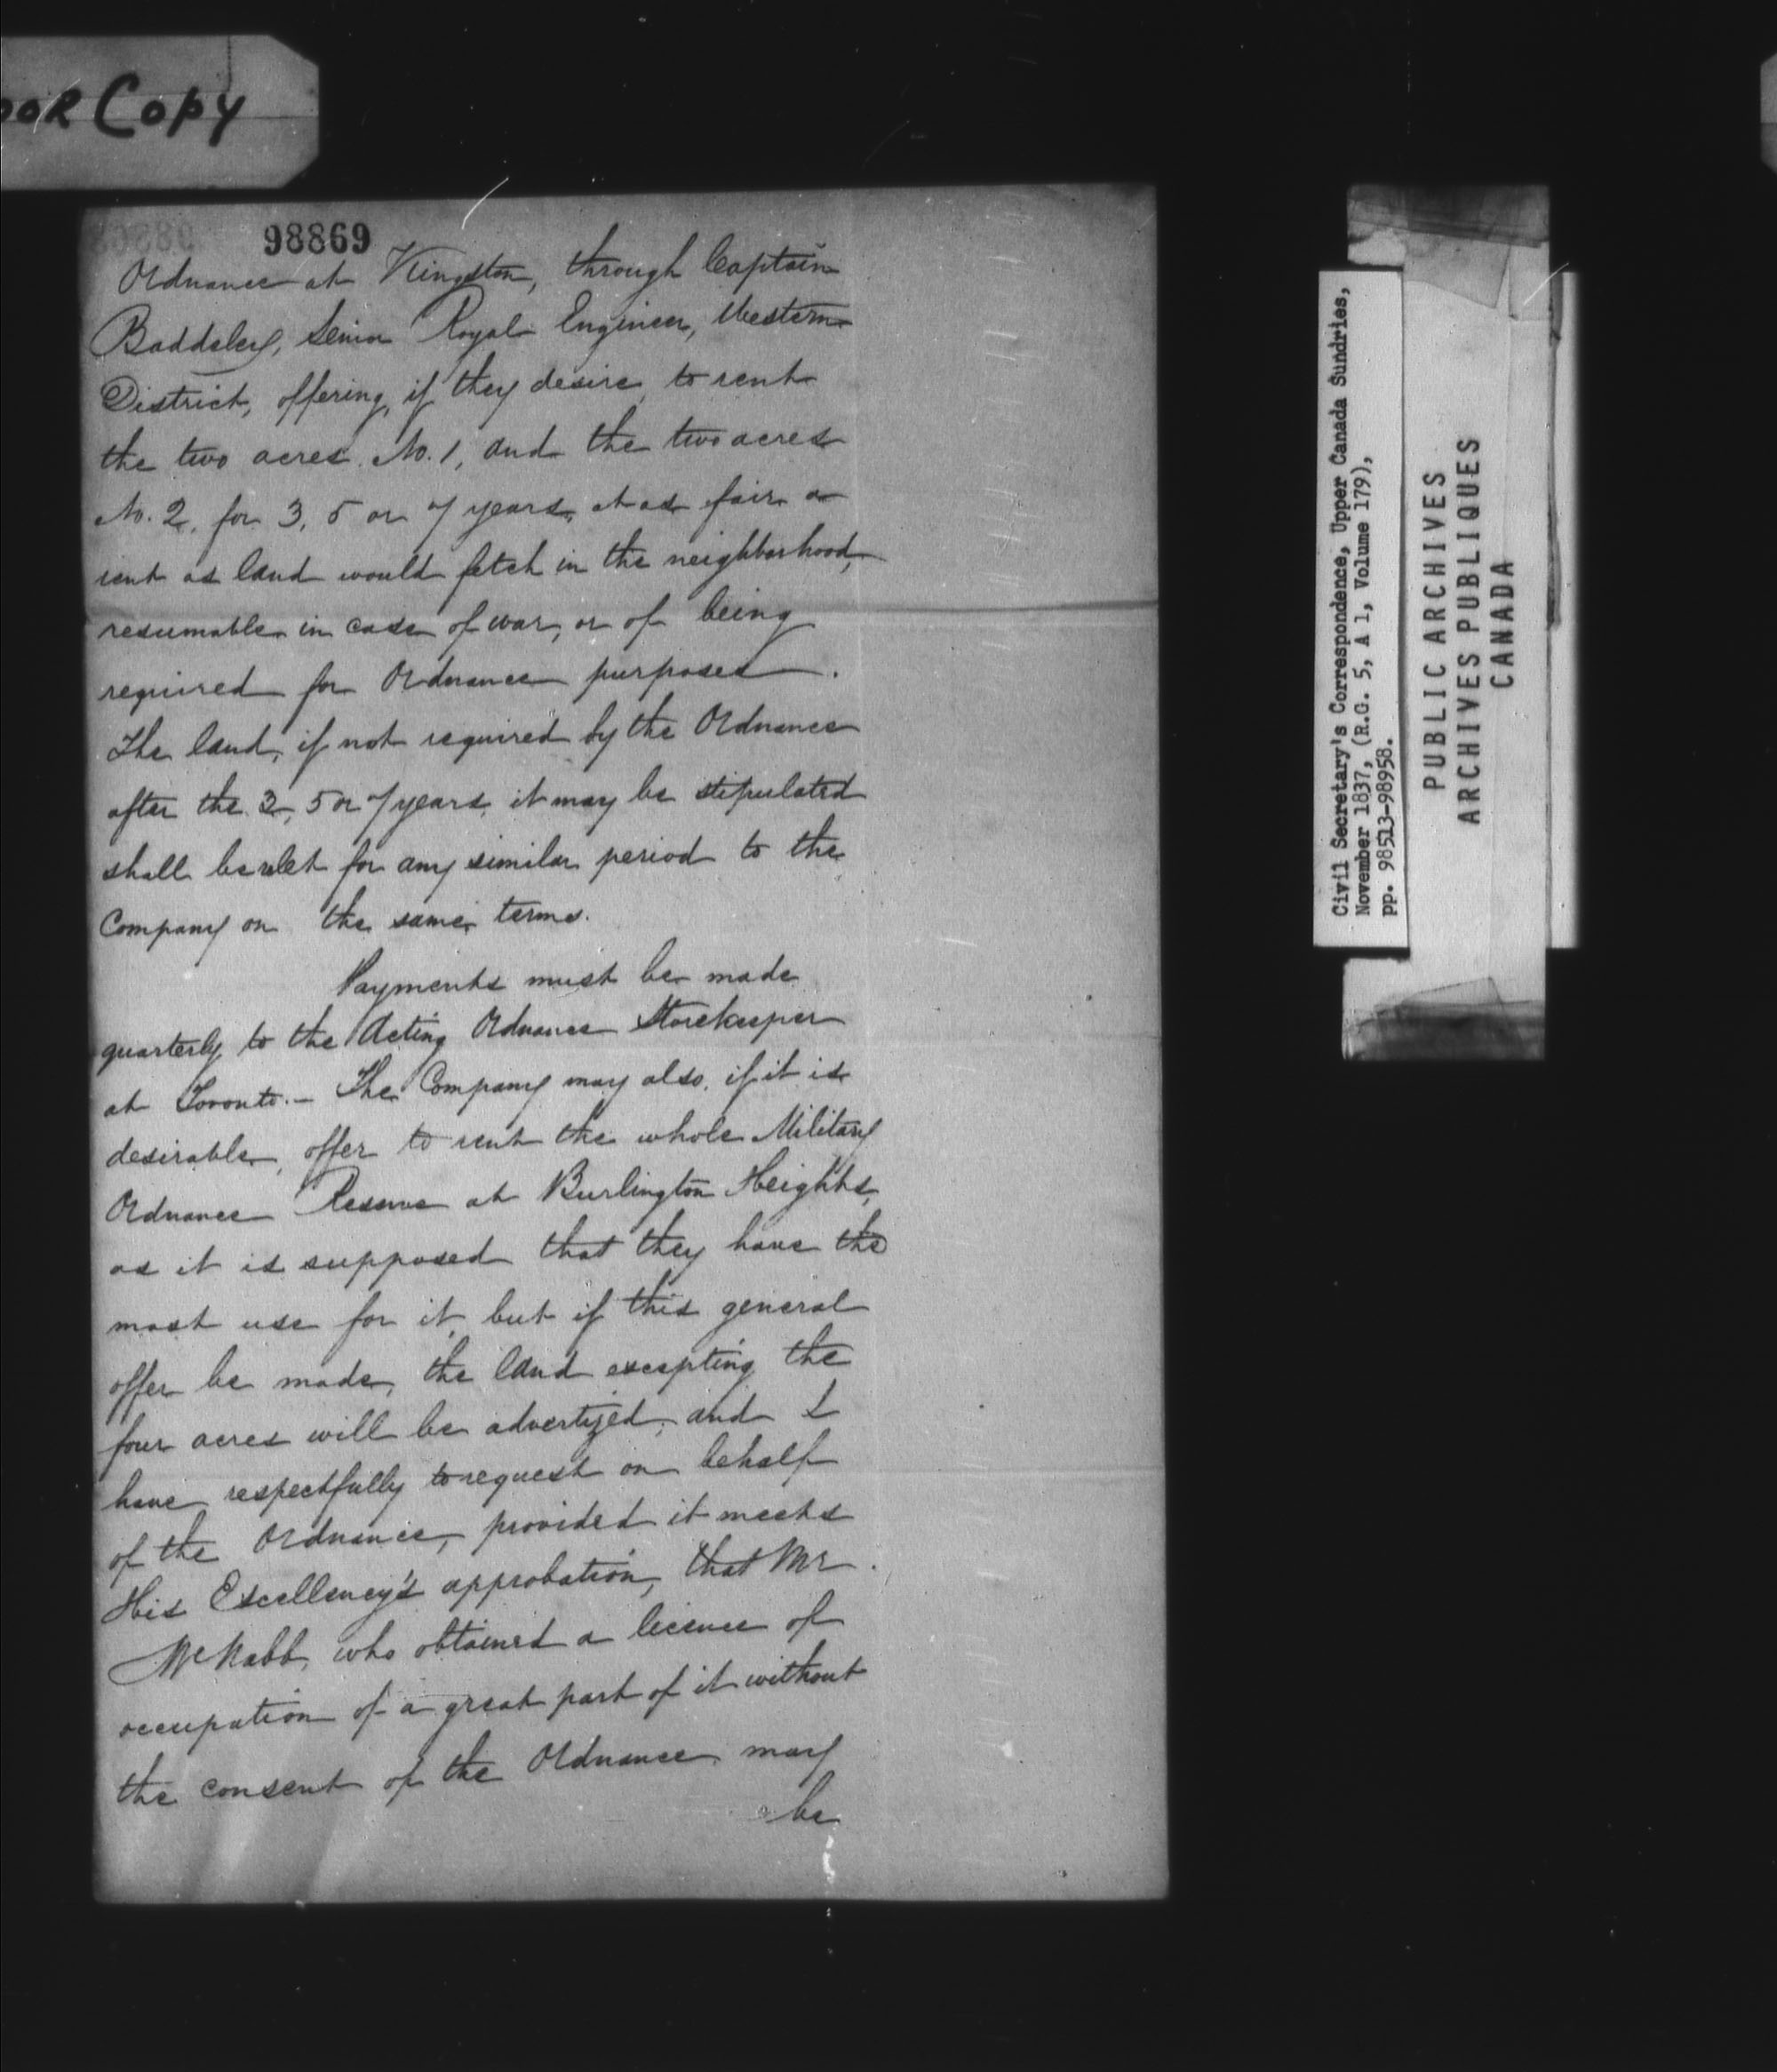 oor Copy
98869
Ordnance at Kingston, through Captain
Baddeley, Senior Royal Engineer, Western
District, offering, if they desire, to rent
the two acres No. 1, and the two acres
No. 2, for 3, 5 or 7 years, at as fair a
rent as land would fetch in the neighborhood,
resumable in case of war, or of being
required for Ordnance purposes.
The land, if not required by the Ordnance
after the 3, 5 or 7 years, it may be stipulated
shall be relet for any similar period to the
Company on the same terms.
Payments must be made
quarterly to the Acting Ordnance Storekeeper
at Toronto. - The Company may also, if it is
desirable, offer to rent the whole Military
Ordnance Reserve at Burlington Heights,
as it is supposed that they have the
most use for it, but if this general
offer be made, the land excepting the
four acres will be advertized, and I
have respectfully to request on behalf
of the Ordnance, provided it meets
His Excellency's approbation, that Mr.
McNabb, who obtained a licence of
occupation of a great part of it without
the consent of the Ordnance may
be
Civil Secretary's Correspondence, Upper Canada Sundries,
November 1837, (R.G. 5, A 1, Volume 179),
pp. 98513-98958.
PUBLIC ARCHIVES
ARCHIVES PUBLIQUES
CANADA